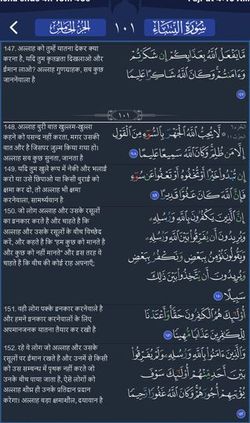 سورة النساء ١٠١ الجزء الخامس
147. अल्लाह को तुम्हें यातना देकर क्या
करना है, यदि तुम कृतज्ञता दिखलाओ और
ईमान लाओ? अल्लाह गुणग्राहक, सब कुछ
जाननेवाला है
مَّا يَفْعَلُ ٱللَّهُ بِعَذَابِكُمْ إِن شَكَرْتُمْ
وَءَامَنتُمْ وَكَانَ ٱللَّهُ شَاكِرًا عَلِيمًا
١٠١
148. अल्लाह बुरी बात खुल्लम-खुल्ला
कहने को पसन्द नहीं करता, मगर उसकी
बात और है जिसपर ज़ुल्म किया गया हो।
अल्लाह सब कुछ सुनता, जानता है
لَّا يُحِبُّ ٱللَّهُ ٱلْجَهْرَ بِٱلسُّوٓءِ مِنَ ٱلْقَوْلِ
إِلَّا مَن ظُلِمَ وَكَانَ ٱللَّهُ سَمِيعًا عَلِيمًا
149. यदि तुम खुले रूप में नेकी और भलाई
करो या उसे छिपाओ या किसी बुराई को
क्षमा कर दो, तो अल्लाह भी क्षमा
करनेवाला, सामर्थ्यवान है
إِن تُبْدُوا۟ خَيْرًا أَوْ تُخْفُوهُ أَوْ تَعْفُوا۟ عَن سُوٓءٍ
فَإِنَّ ٱللَّهَ كَانَ عَفُوًّا قَدِيرًا
150. जो लोग अल्लाह और उसके रसूलों
का इनकार करते है और चाहते है कि
अल्लाह और उसके रसूलों के बीच विच्छेद
करें, और कहते है कि "हम कुछ को मानते है
और कुछ को नहीं मानते" और इस तरह वे
चाहते है कि बीच की कोई राह अपनाएँ;
إِنَّ ٱلَّذِينَ يَكْفُرُونَ بِٱللَّهِ وَرُسُلِهِۦ
وَيُرِيدُونَ أَن يُفَرِّقُوا۟ بَيْنَ ٱللَّهِ وَرُسُلِهِۦ
وَيَقُولُونَ نُؤْمِنُ بِبَعْضٍ وَنَكْفُرُ بِبَعْضٍ
وَيُرِيدُونَ أَن يَتَّخِذُوا۟ بَيْنَ ذَٰلِكَ
سَبِيلًا
151. वही लोग पक्के इनकार करनेवाले है
और हमने इनकार करनेवालों के लिए
अपमानजनक यातना तैयार कर रखी है
أُو۟لَٰٓئِكَ هُمُ ٱلْكَٰفِرُونَ حَقًّا وَأَعْتَدْنَا
لِلْكَٰفِرِينَ عَذَابًا مُّهِينًا
152. रहे वे लोग जो अल्लाह और उसके
रसूलों पर ईमान रखते है और उनमें से किसी
को उस सम्बन्ध में पृथक नहीं करते जो
उनके बीच पाया जाता है, ऐसे लोगों को
अल्लाह शीघ्र ही उनके प्रतिदान प्रदान
करेगा। अल्लाह बड़ा क्षमाशील, दयावान है
وَٱلَّذِينَ ءَامَنُوا۟ بِٱللَّهِ وَرُسُلِهِۦ وَلَمْ يُفَرِّقُوا۟
بَيْنَ أَحَدٍ مِّنْهُمْ أُو۟لَٰٓئِكَ سَوْفَ
يُؤْتِيهِمْ أُجُورَهُمْ وَكَانَ ٱللَّهُ غَفُورًا رَّحِيمًا